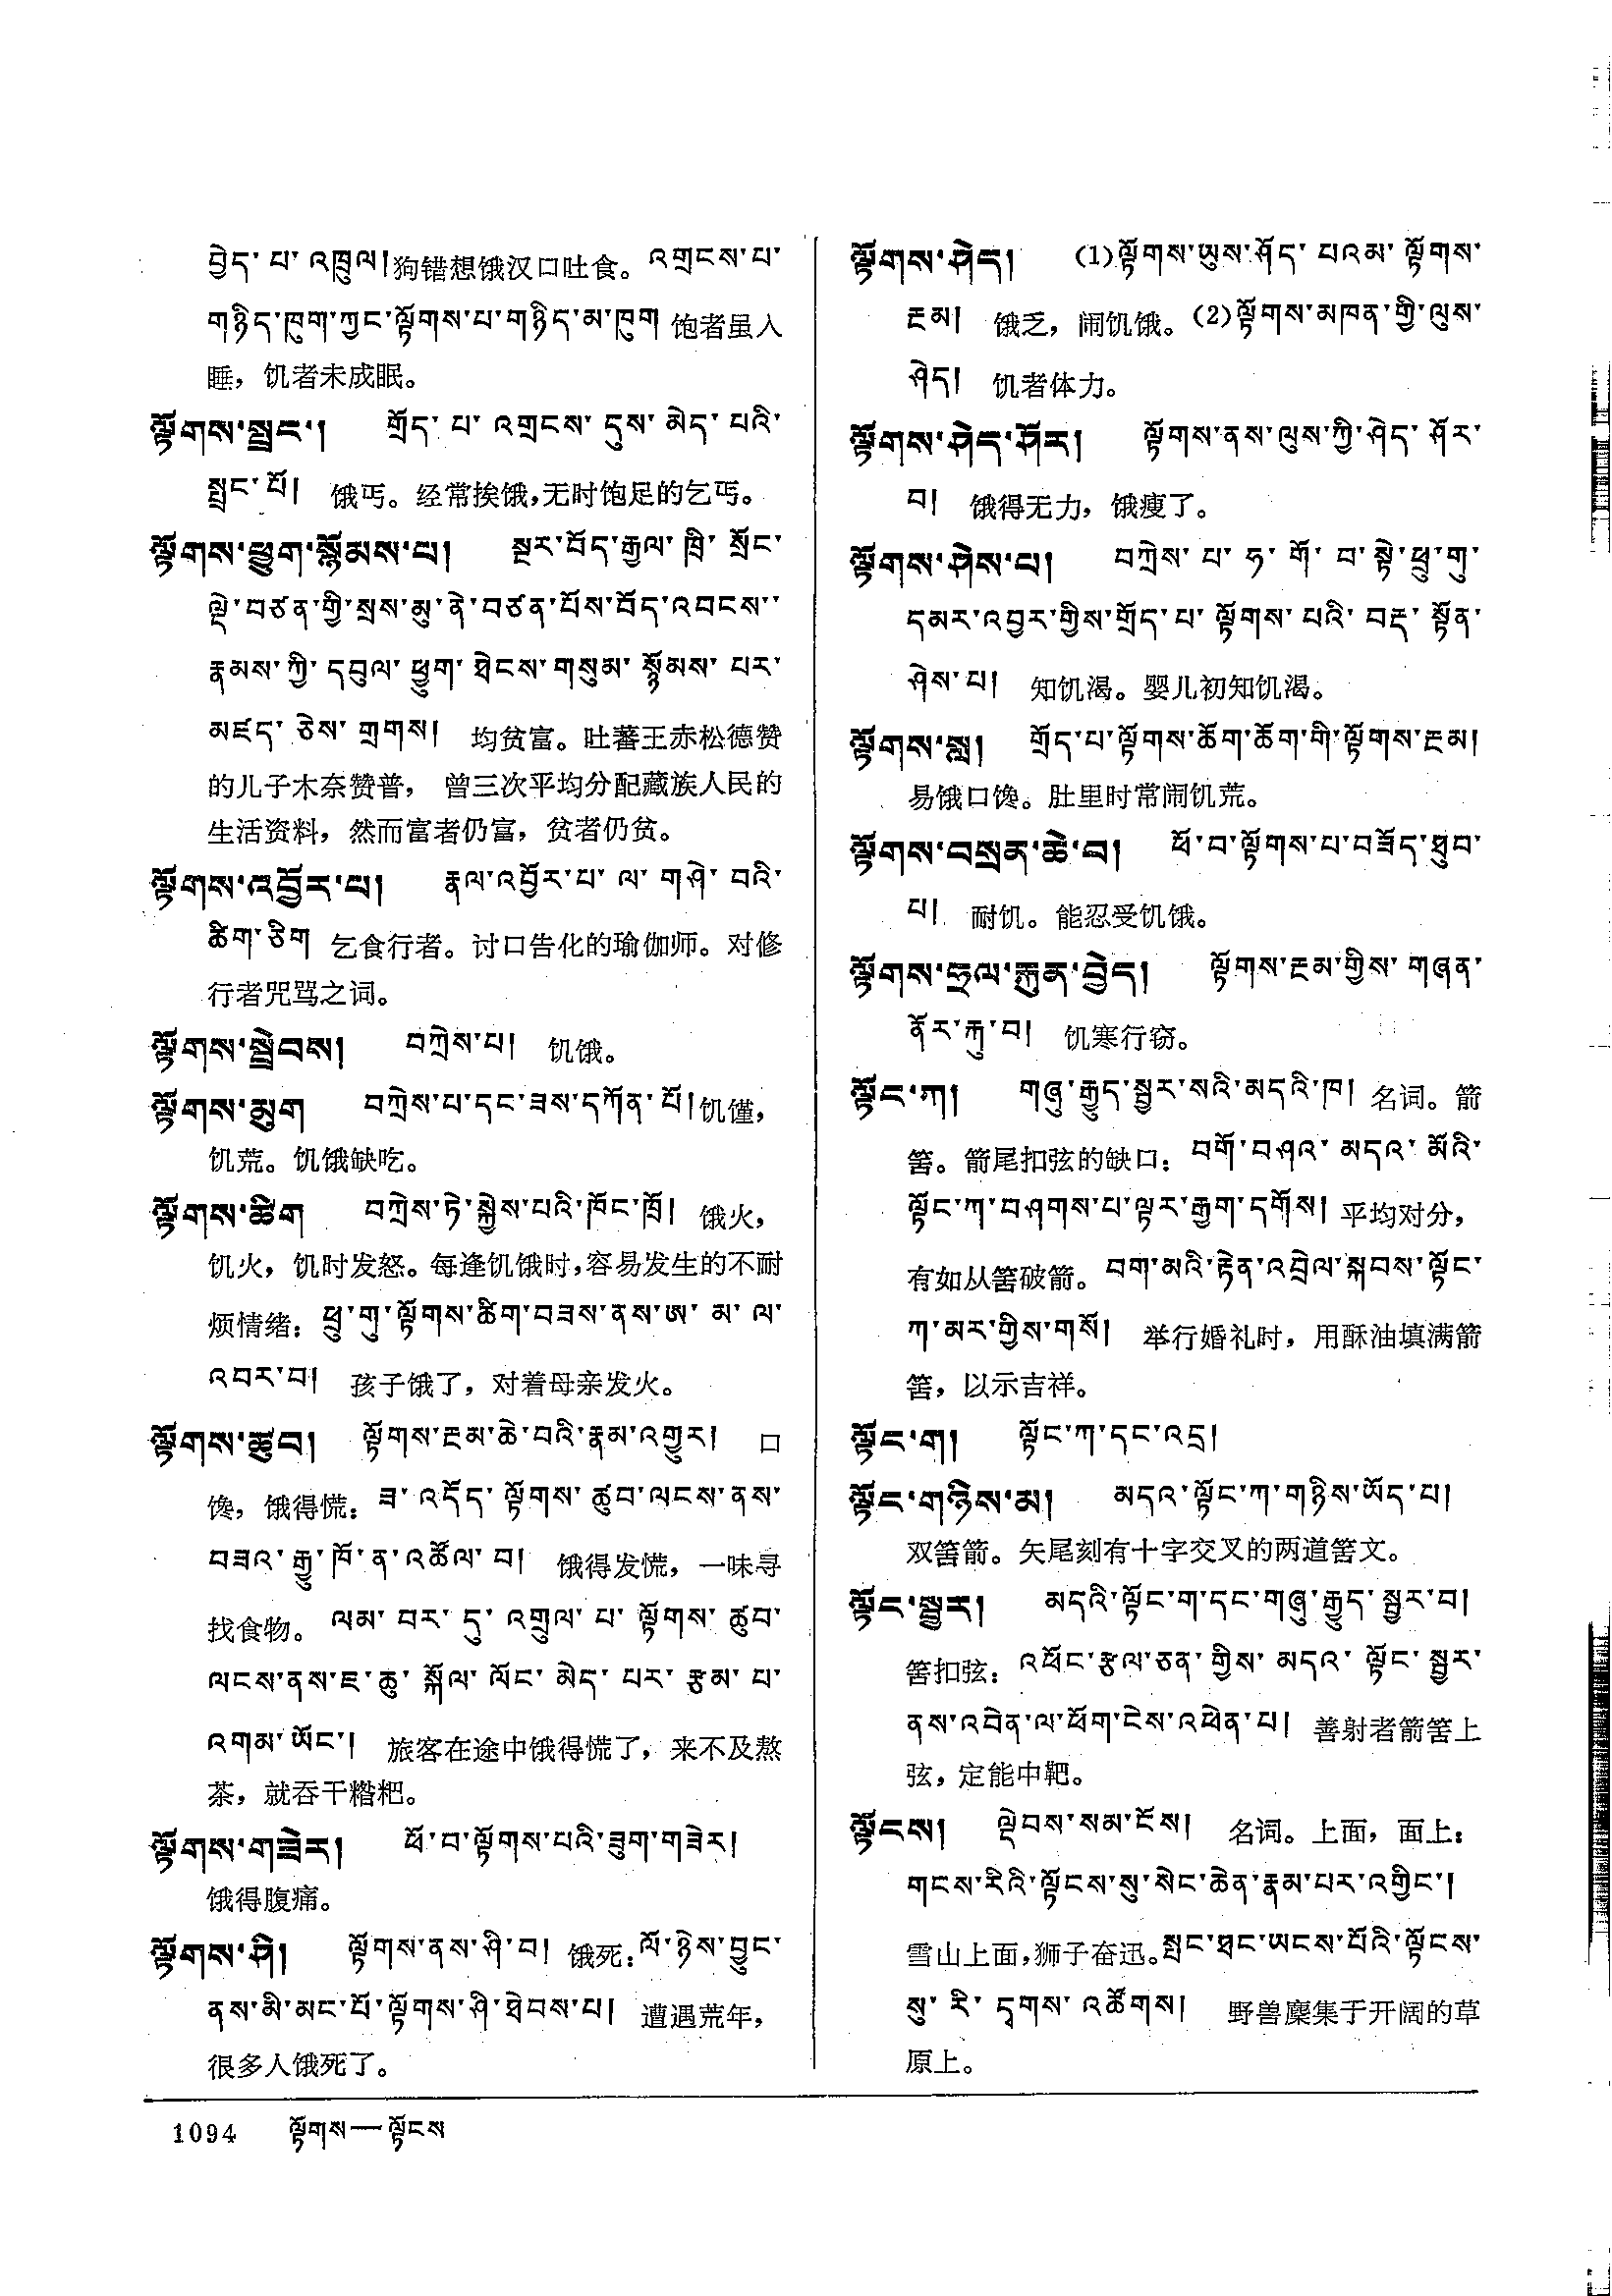 བྱེད་ པ་ འཁྲུལ།狗错想饿汉口吐食。འགྲངས་པ་
གཉིད་ཁུག་ཀྱང་ལྟོགས་པ་གཉིད་མ་ཁུག 饱者虽入
睡，饥者未成眠。
ལྟོགས་སྤྲང་། གྲོད་ པ་ འགྲངས་ དུས་ མེད་ པའི་
སྤྲང་པོ། 饿丐。经常挨饿,无时饱足的乞丐。
ལྟོགས་ཕྱུག་སྙོམས་པ། སྔར་བོད་རྒྱལ་ ཁྲི་ སྲོང་
ལྡེ་བཙན་གྱི་སྲས་མུ་ནེ་བཙན་པོས་བོད་འབངས་
རྣམས་ཀྱི་ དབུལ་ ཕྱུག་ ཐེངས་གསུམ་ སྙོམས་ པར་
མཛད་ ཅེས་ གྲགས། 均贫富。吐蕃王赤松德赞
的儿子木奈赞普， 曾三次平均分配藏族人民的
生活资料，然而富者仍富，贫者仍贫。
ལྟོགས་འབྱོར་པ། རྣལ་འབྱོར་པ་ ལ་ གཤེ་ བའི་
ཚིག་ཅིག 乞食行者。讨口告化的瑜伽师。对修
行者咒骂之词。
ལྟོགས་སྦྲེབས། བཀྲེས་པ། 饥饿。
ལྟོགས་མུག བཀྲེས་པ་དང་ཟས་དཀོན་པོ།饥馑，
饥荒。饥饿缺吃。
ལྟོགས་ཚིག བཀྲེས་ཏེ་སྐྱེས་པའི་ཁོང་ཁྲོ། 饿火，
饥火，饥时发怒。每逢饥饿时,容易发生的不耐
烦情绪：ཕྲུ་གུ་ལྟོགས་ཚིག་བཟས་ནས་ཨ་ མ་ ལ་
འབར་བ། 孩子饿了，对着母亲发火。
ལྟོགས་ཚུབ། ལྟོགས་ངམ་ཆེ་བའི་རྣམ་འགྱུར། 口
馋，饿得慌：ཟ་ འདོད་ ལྟོགས་ ཚུབ་ལངས་ནས་
བཟའ་རྒྱུ་ཁོ་ན་འཚོལ་བ། 饿得发慌，一味寻
找食物。ལམ་ བར་ དུ་ འགྲུལ་ པ་ ལྟོགས་ ཚུབ་
ལངས་ནས་ཇ་ཆུ་ སྐོལ་ ལོང་ མེད་ པར་ རྩམ་ པ་
འགམ་ཡོང་། 旅客在途中饿得慌了，来不及熬
茶，就吞干糌粑。
ལྟོགས་གཟེར། ཕོ་བ་ལྟོགས་པའི་ཟུག་གཟེར།
饿得腹痛。
ལྟོགས་ཤི། ལྟོགས་ནས་ཤི་བ། 饿死：ལོ་ཉེས་བྱུང་
ནས་མི་མང་པོ་ལྟོགས་ཤི་ཐེབས་པ། 遭遇荒年，
很多人饿死了。
ལྟོགས་ཤེད། (1)ལྟོགས་ཨུས་ཤོད་ པའམ་ ལྟོགས་
ངམ། 饿乏，闹饥饿。(2)ལྟོགས་མཁན་གྱི་ལུས་
ཤེད། 饥者体力。
ལྟོགས་ཤེད་ཤོར། ལྟོགས་ནས་ལུས་ཀྱི་ཤེད་ ཤོར་
བ། 饿得无力，饿瘦了。
ལྟོགས་ཤེས་པ། བཀྲེས་ པ་ ཧ་ གོ་ བ་ སྟེ་ཕྲུ་གུ་
དམར་འབྱར་གྱིས་གྲོད་པ་ ལྟོགས་ པའི་ བརྡ་ སྟོན་
ཤེས་པ། 知饥渴。婴儿初知饥渴。
ལྟོགས་སླ། གྲོད་པ་ལྟོགས་ཆོག་ཆོག་གི་ལྟོགས་ངམ།
易饿口馋。肚里时常闹饥荒。
ལྟོགས་བསྲན་ཆེ་བ། ཕོ་བ་ལྟོགས་པ་བཟོད་ཐུབ་
པ། 耐饥。能忍受饥饿。
ལྟོགས་ཧྲལ་རྐུན་བྱེད། ལྟོགས་ངམ་གྱིས་ གཞན་
ནོར་རྐུ་བ། 饥寒行窃。
ལྟོང་ཀ། གཞུ་རྒྱུད་སྦྱར་སའི་མདའི་ཁ། 名词。箭
筈。箭尾扣弦的缺口：བགོ་བཤའ་ མདའ་ མོའི་
ལྟོང་ཀ་བཤགས་པ་ལྟར་རྒྱག་དགོས། 平均对分，
有如从筈破箭。བག་མའི་རྟེན་འབྲེལ་སྐབས་ལྟོང་
ཀ་མར་གྱིས་གསོ། 举行婚礼时，用酥油填满箭
筈，以示吉祥。
ལྟོང་ག། ལྟོང་ཀ་དང་འདྲ།
ལྟོང་གཉིས་མ། མདའ་ལྟོང་ཀ་གཉིས་ཡོད་པ།
双筈箭。矢尾刻有十字交叉的两道筈文。
ལྟོང་སྦྱར། མདའི་ལྟོང་ག་དང་གཞུ་རྒྱུད་སྦྱར་བ།
筈扣弦：འཕོང་རྩལ་ཅན་ གྱིས་ མདའ་ ལྟོང་ སྦྱར་
ནས་འབེན་ལ་ཕོག་ངེས་འཕེན་པ། 善射者箭筈上
弦，定能中靶。
ལྟོངས། ལྡེབས་སམ་ངོས། 名词。上面，面上：
གངས་རིའི་ལྟོངས་སུ་སེང་ཆེན་རྣམ་པར་འགྱིང་།
雪山上面,狮子奋迅。སྤང་ཐང་ཡངས་པོའི་ལྟོངས་
སུ་ རི་ དྭགས་ འཚོགས། 野兽麇集于开阔的草
原上。
1094 ལྟོགས—ལྟོངས